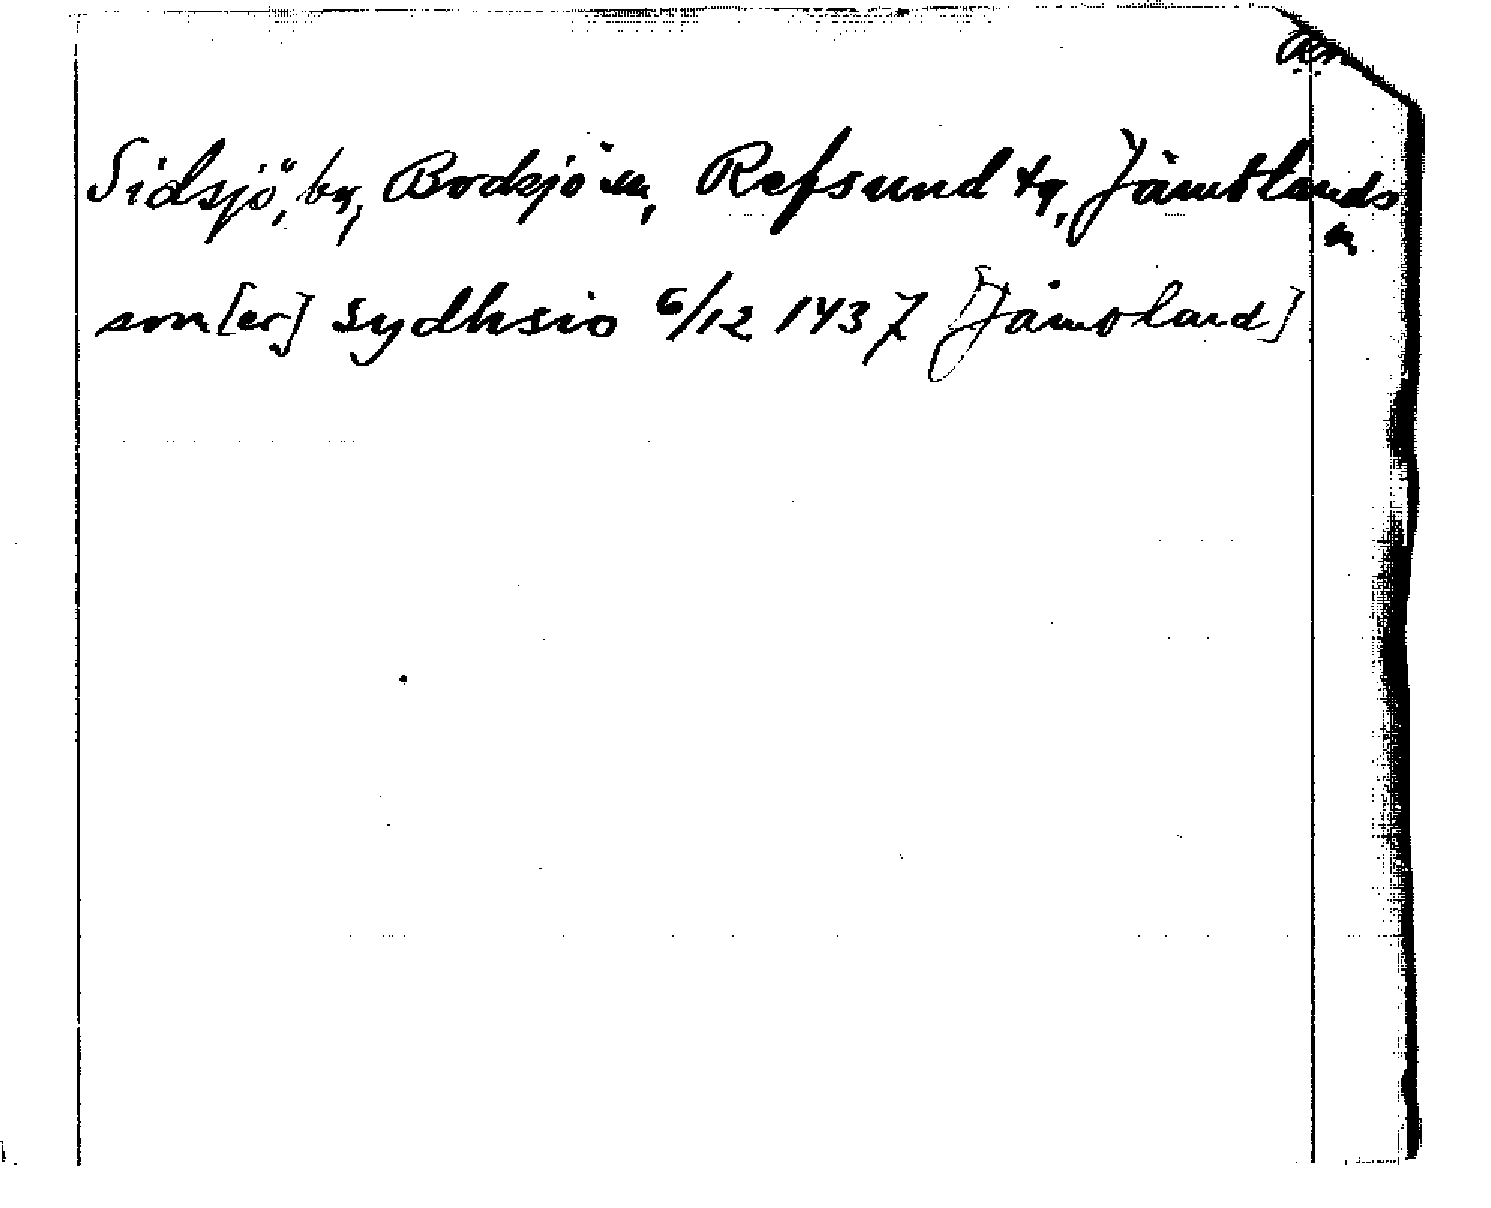 Sidsjö, by, Bodsjö sn, Refsund tg, Jämtlands
sn[er] sydhsio 6/12 1437 [Jämtland]